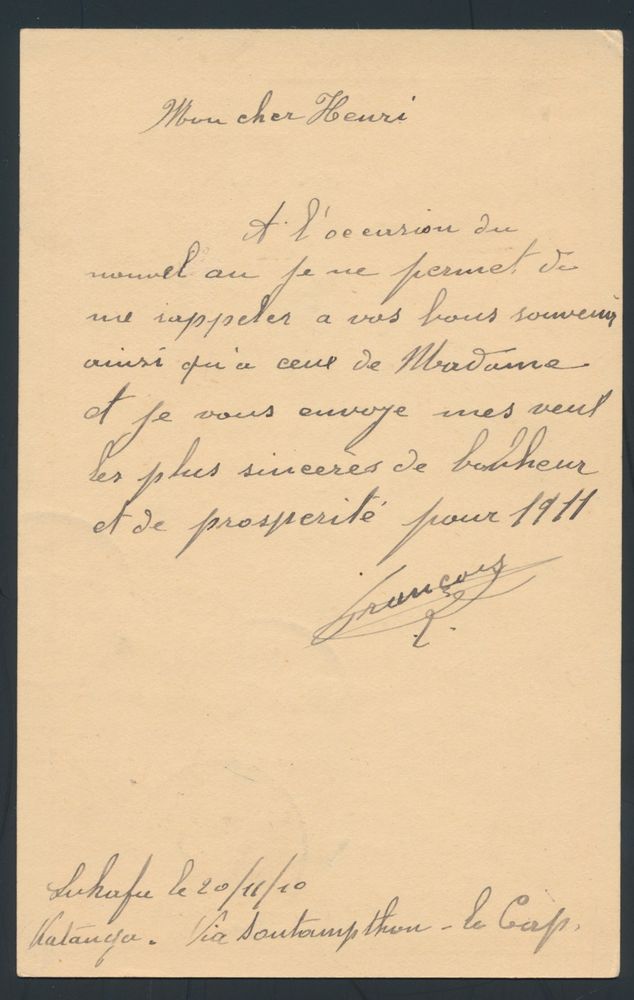 Mon cher Henri
A l'occasion du
nouvel an je me permet de
me rappeler a vos bons souvenirs
ainsi qu'a ceux de Madame
et je vous envoye mes veux
les plus sincères de bonheur
et de prosperité pour 1911
François
Lukafu le 20/11/10
Katanga. Via Soutampthon - le Cap.